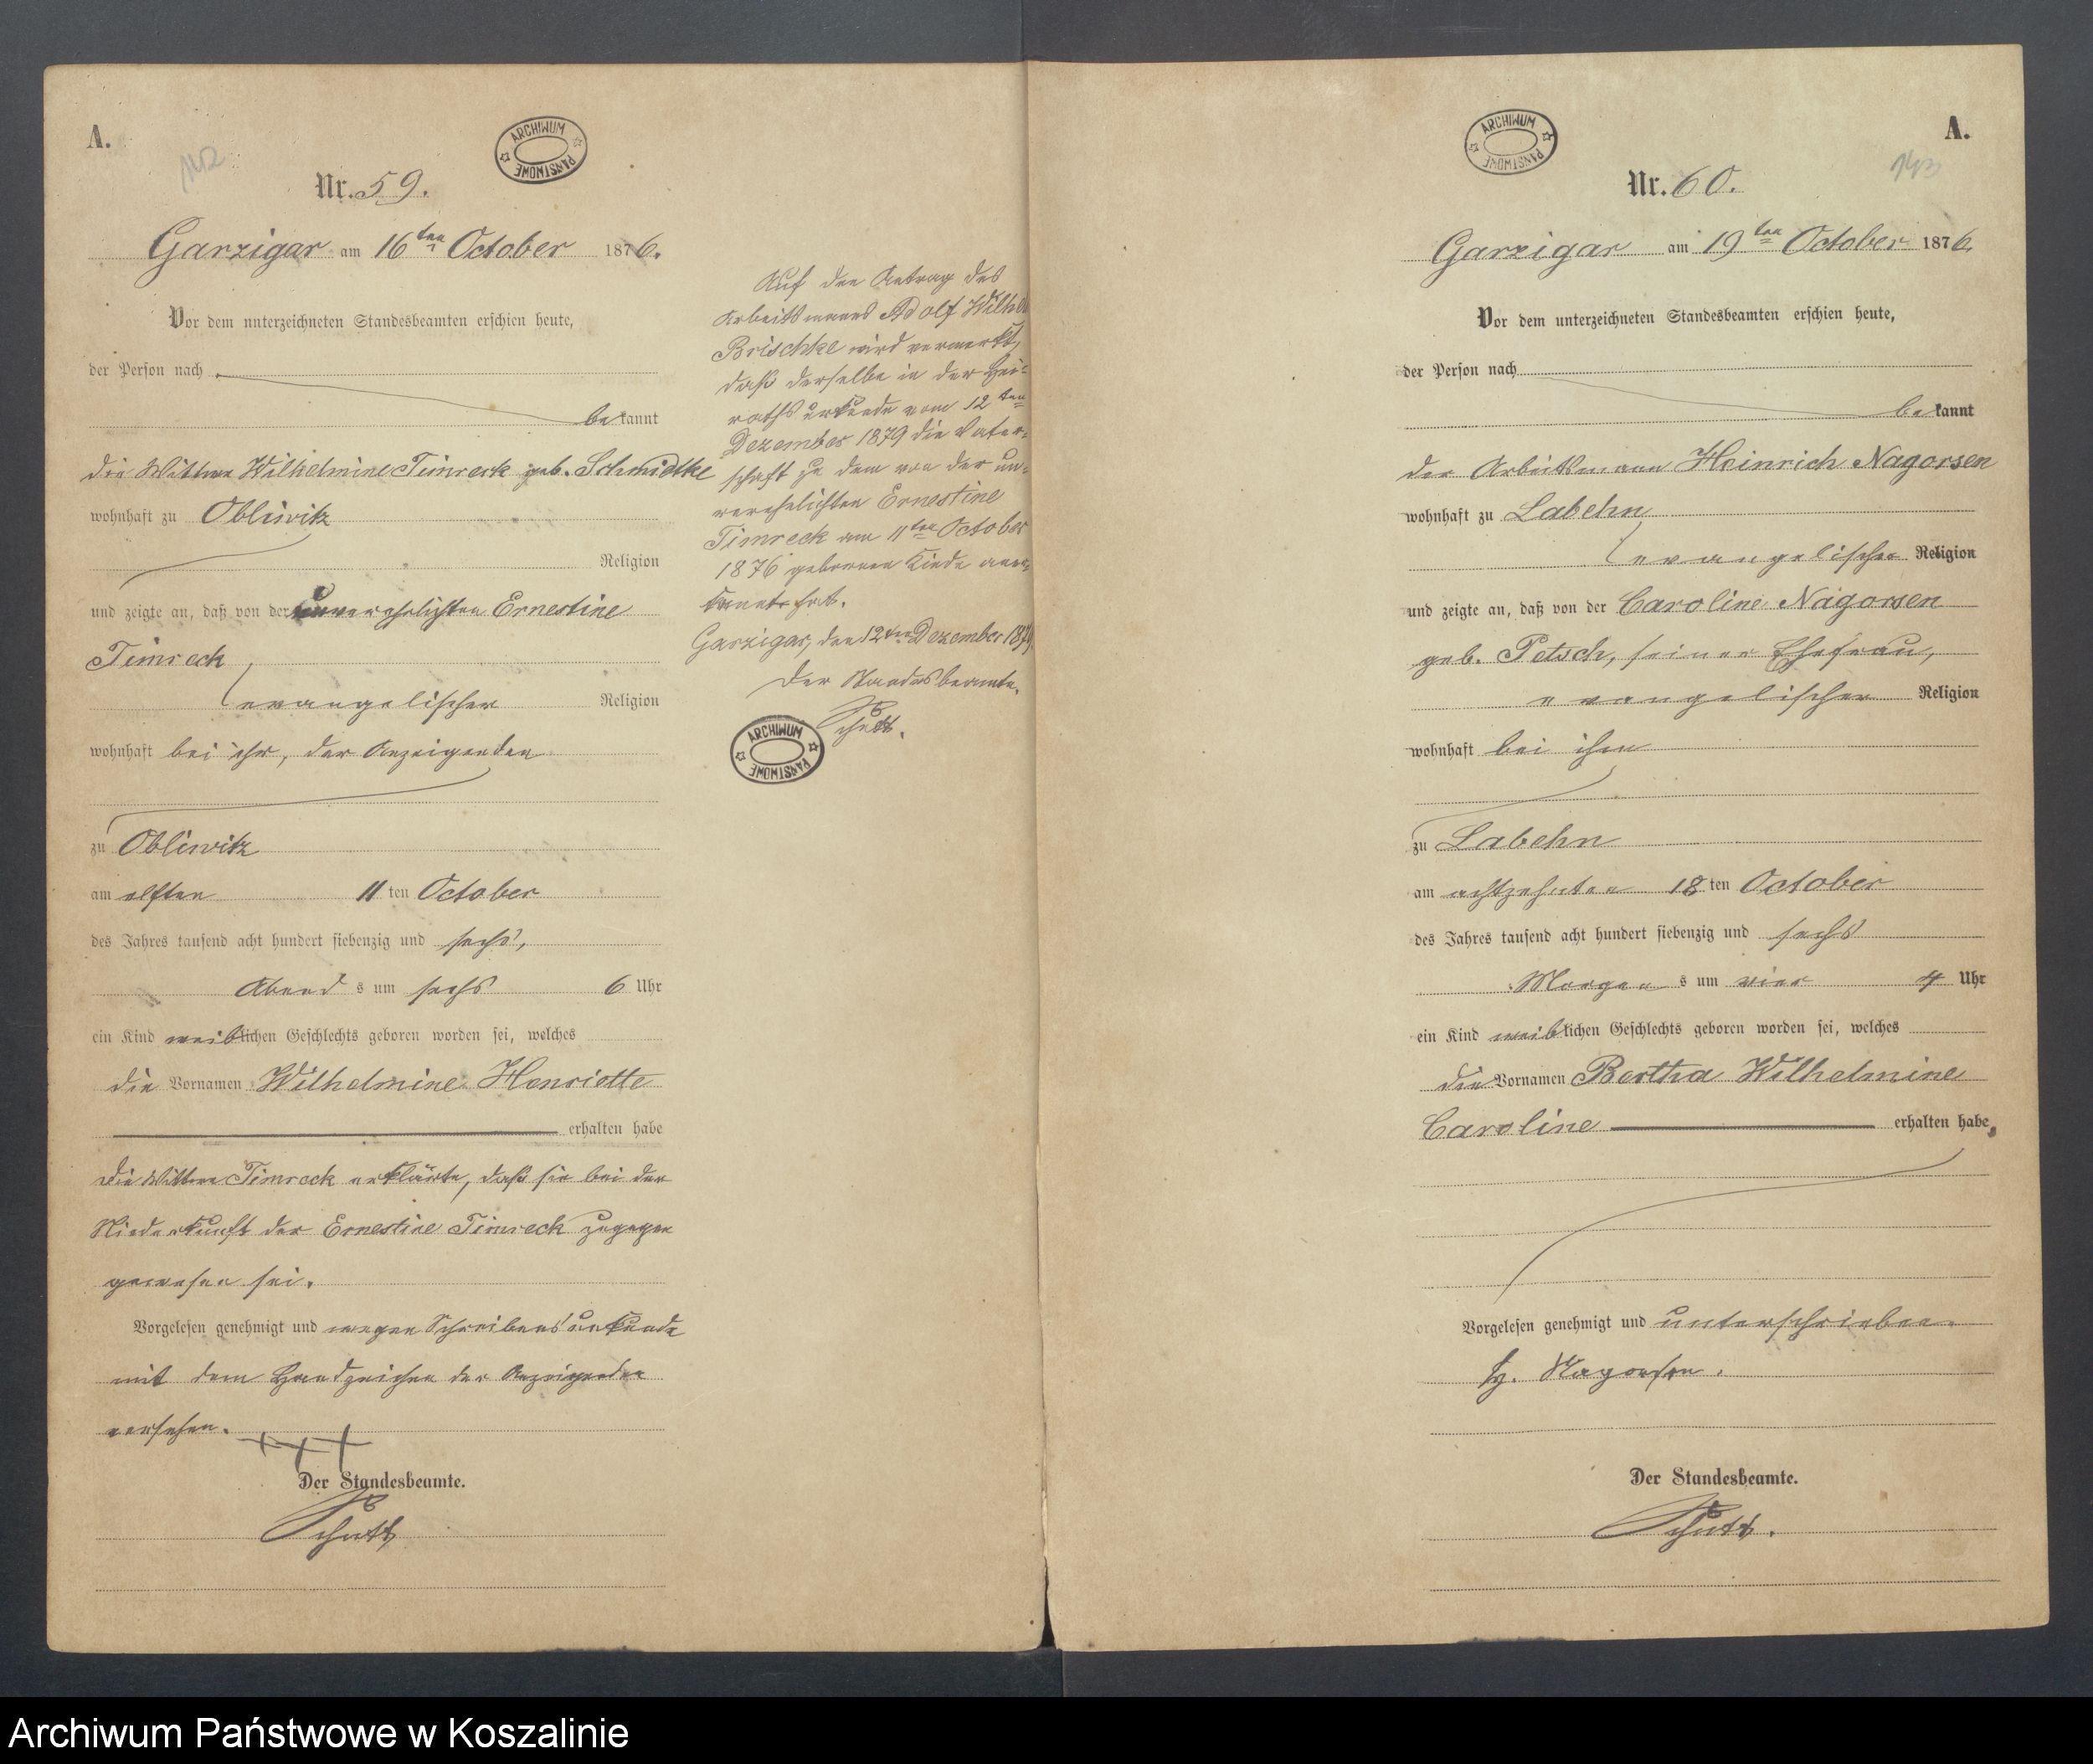 A.
142
ARCHIWUM PAŃSTWOWE
Nr. 59.
Garzigar am 16ten October 1876.
Vor dem unterzeichneten Standesbeamten erschien heute,
der Person nach
bekannt
die Wittwe Wilhelmine Timreck geb. Schmidtke
wohnhaft zu Obliwitz
Religion
und zeigte an, daß von der unverehelichten Ernestine
Timreck
evangelischer Religion
wohnhaft bei ihr, der Anzeigenden
zu Obliwitz
am elften 11 ten October
des Jahres tausend acht hundert siebenzig und sechs,
Abend s um sechs 6 Uhr
ein Kind weiblichen Geschlechts geboren worden sei, welches
die Vornamen Wilhelmine Henriette
erhalten habe
Die Wittwe Timreck erklärte, daß sie bei der
Niederkunft der Ernestine Timreck zugegen
gewesen sei.
Vorgelesen genehmigt und wegen Schreibensunkunde
mit dem Handzeichen der Anzeigenden
versehen.
+++
Der Standesbeamte.
Schutt
Auf den Antrag des
Arbeitsmanns Adolf Wilhelm
Brischke wird vermerkt,
daß derselbe in der Hei-
rathsurkunde vom 12ten
Dezember 1879 die Vater-
schaft zu dem von der un-
verehelichten Ernestine
Timreck am 11ten October
1876 geborenen Kinde aner-
kannt hat.
Garzigar, den 12ten Dezember 1879.
Der Standesbeamte.
Schutt.
ARCHIWUM PAŃSTWOWE
ARCHIWUM PAŃSTWOWE
A.
143
Nr. 60.
Garzigar am 19ten October 1876.
Vor dem unterzeichneten Standesbeamten erschien heute,
der Person nach
bekannt
der Arbeitsmann Heinrich Nagorsen
wohnhaft zu Labehn
evangelischer Religion
und zeigte an, daß von der Caroline Nagorsen
geb. Petsch, seiner Ehefrau,
evangelischer Religion
wohnhaft bei ihm
zu Labehn
am achtzehnten 18 ten October
des Jahres tausend acht hundert siebenzig und sechs
Morgen s um vier 4 Uhr
ein Kind weiblichen Geschlechts geboren worden sei, welches
die Vornamen Bertha Wilhelmine
Caroline erhalten habe,
Vorgelesen genehmigt und unterschrieben.
H. Nagorsen.
Der Standesbeamte.
Schutt.
Archiwum Państwowe w Koszalinie